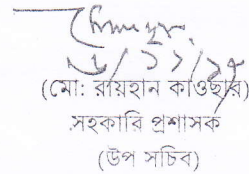 (মো: রায়হান কাওছার)
সহকারি প্রশাসক
(উপ সচিব)